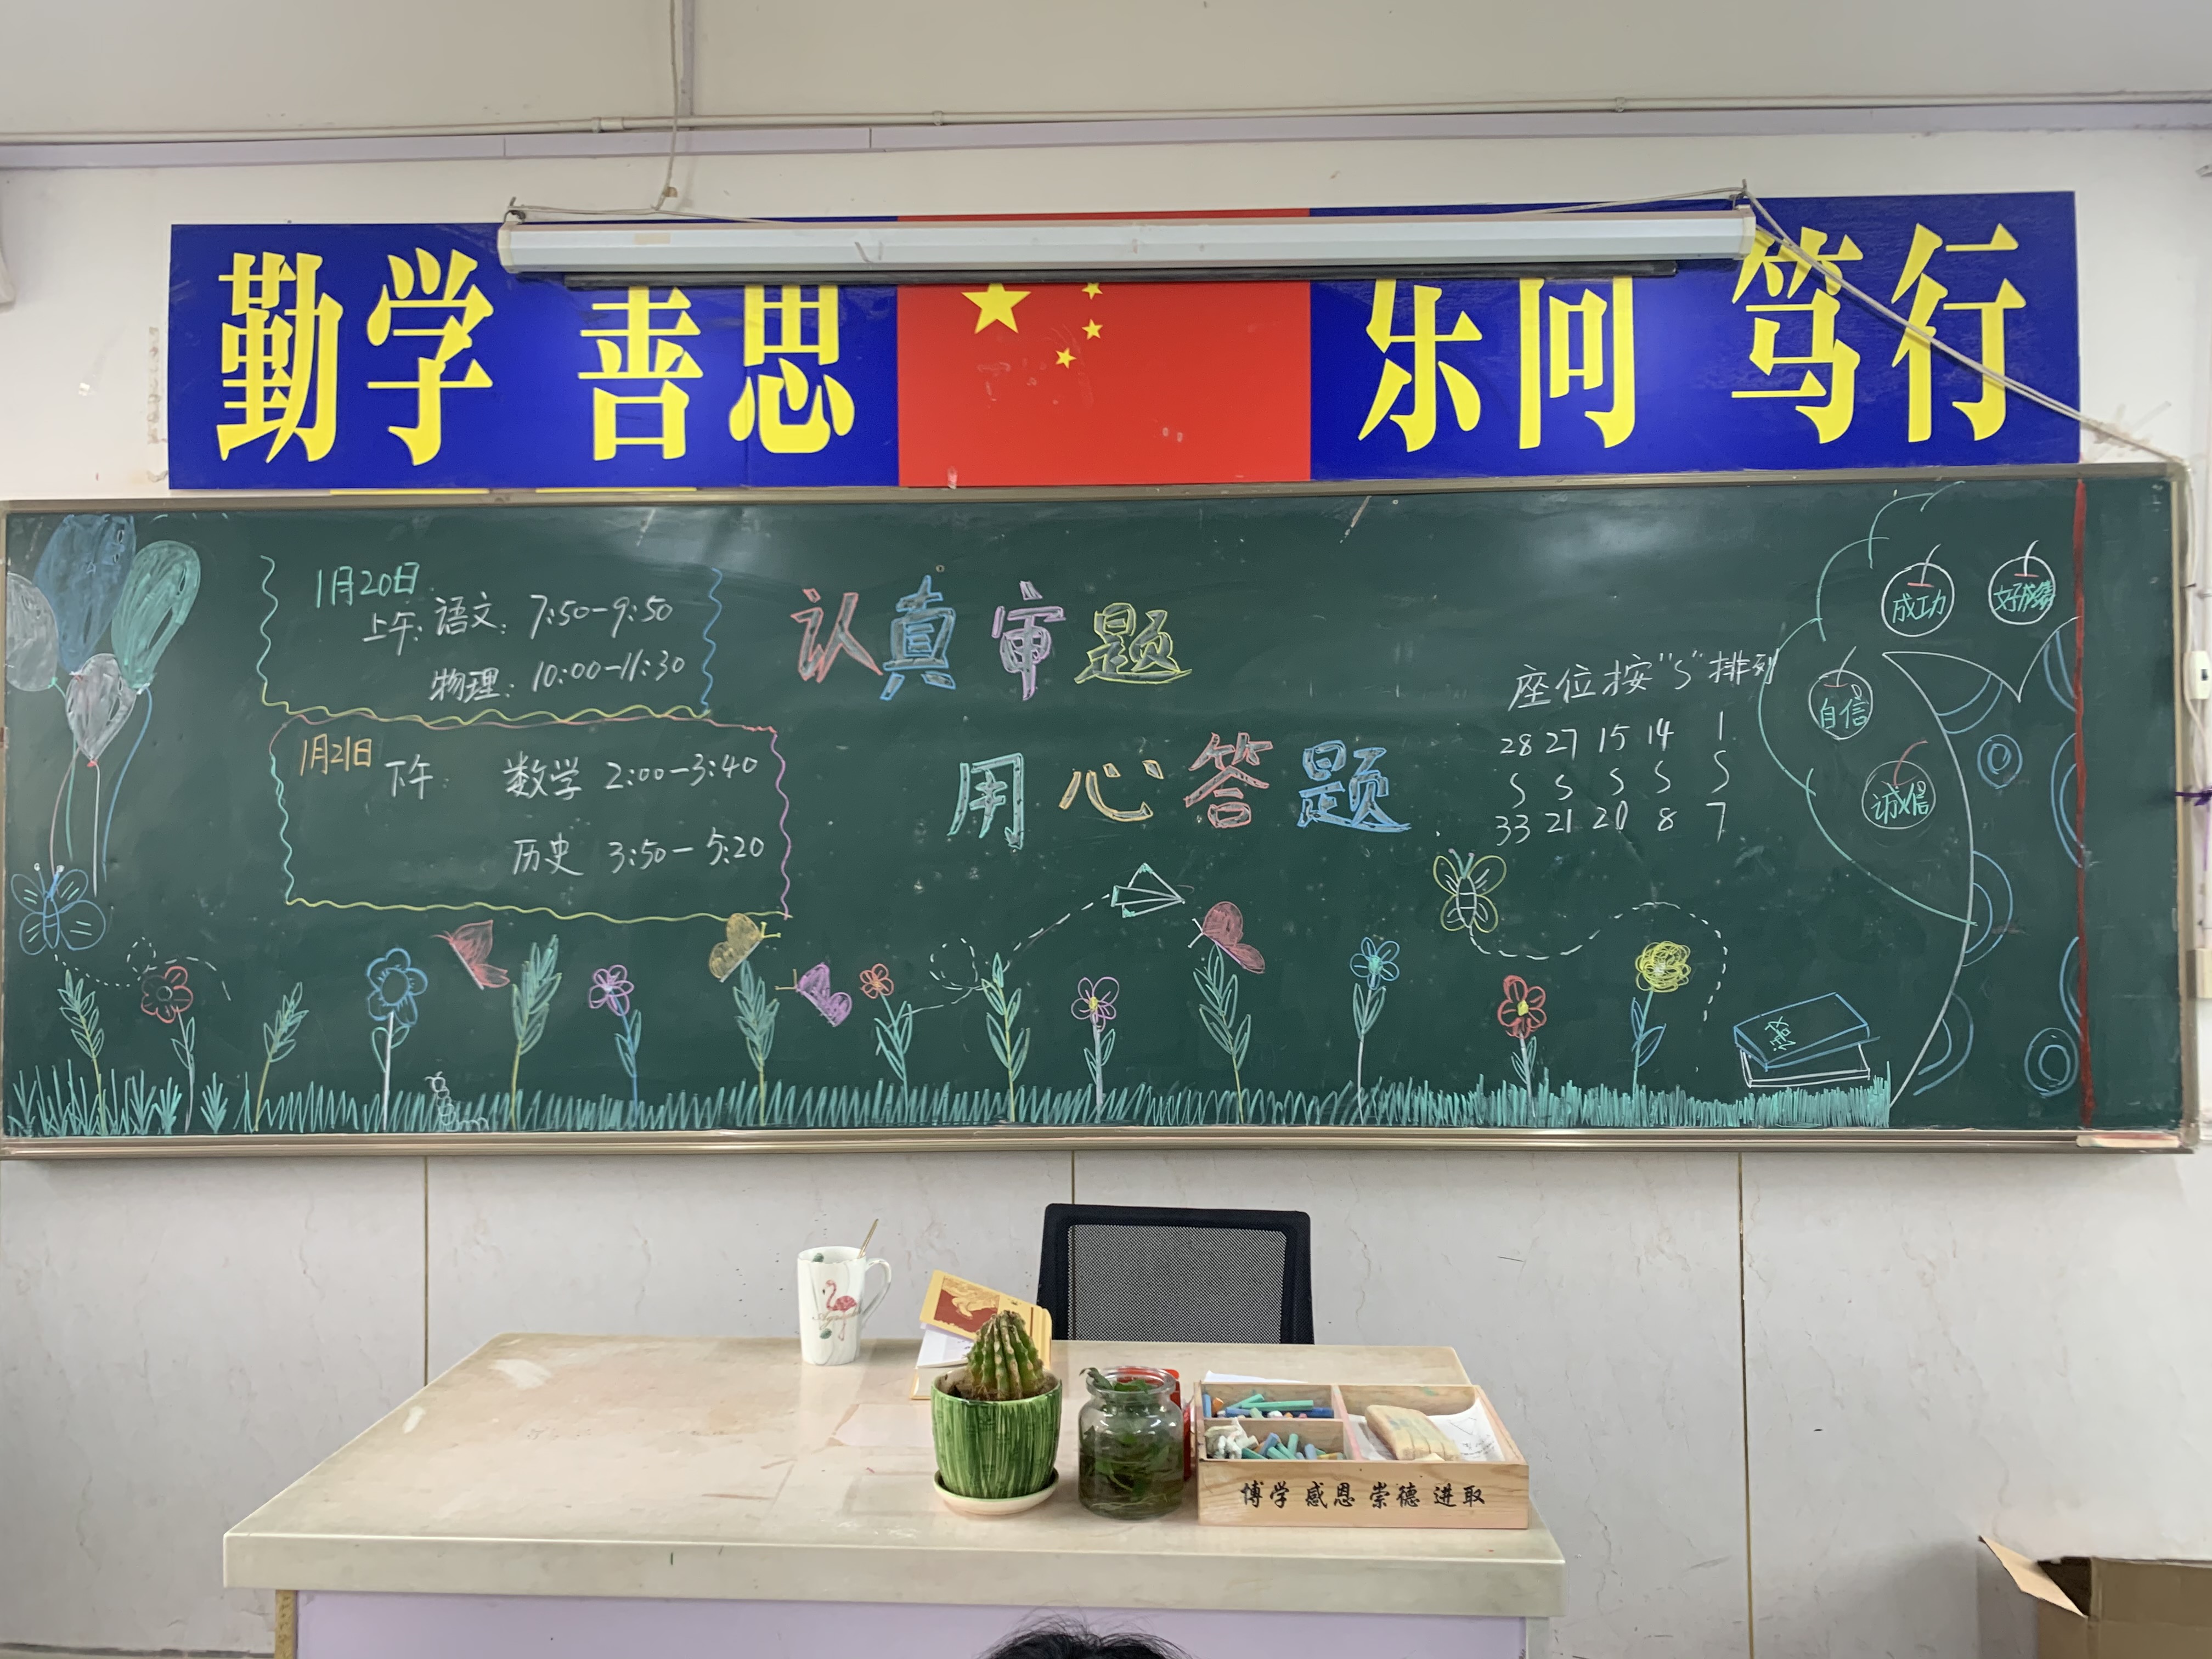 勤学 善思 乐问 笃行
1月20日
上午: 语文: 7:50-9:50
物理: 10:00-11:30
1月21日 下午: 数学 2:00-3:40
历史 3:50-5:20
认真审题
用心答题
座位按"S"排列
28 27 15 14 1
S S S S S
33 21 20 8 7
成功
好成绩
自信
诚信
博学 感恩 崇德 进取